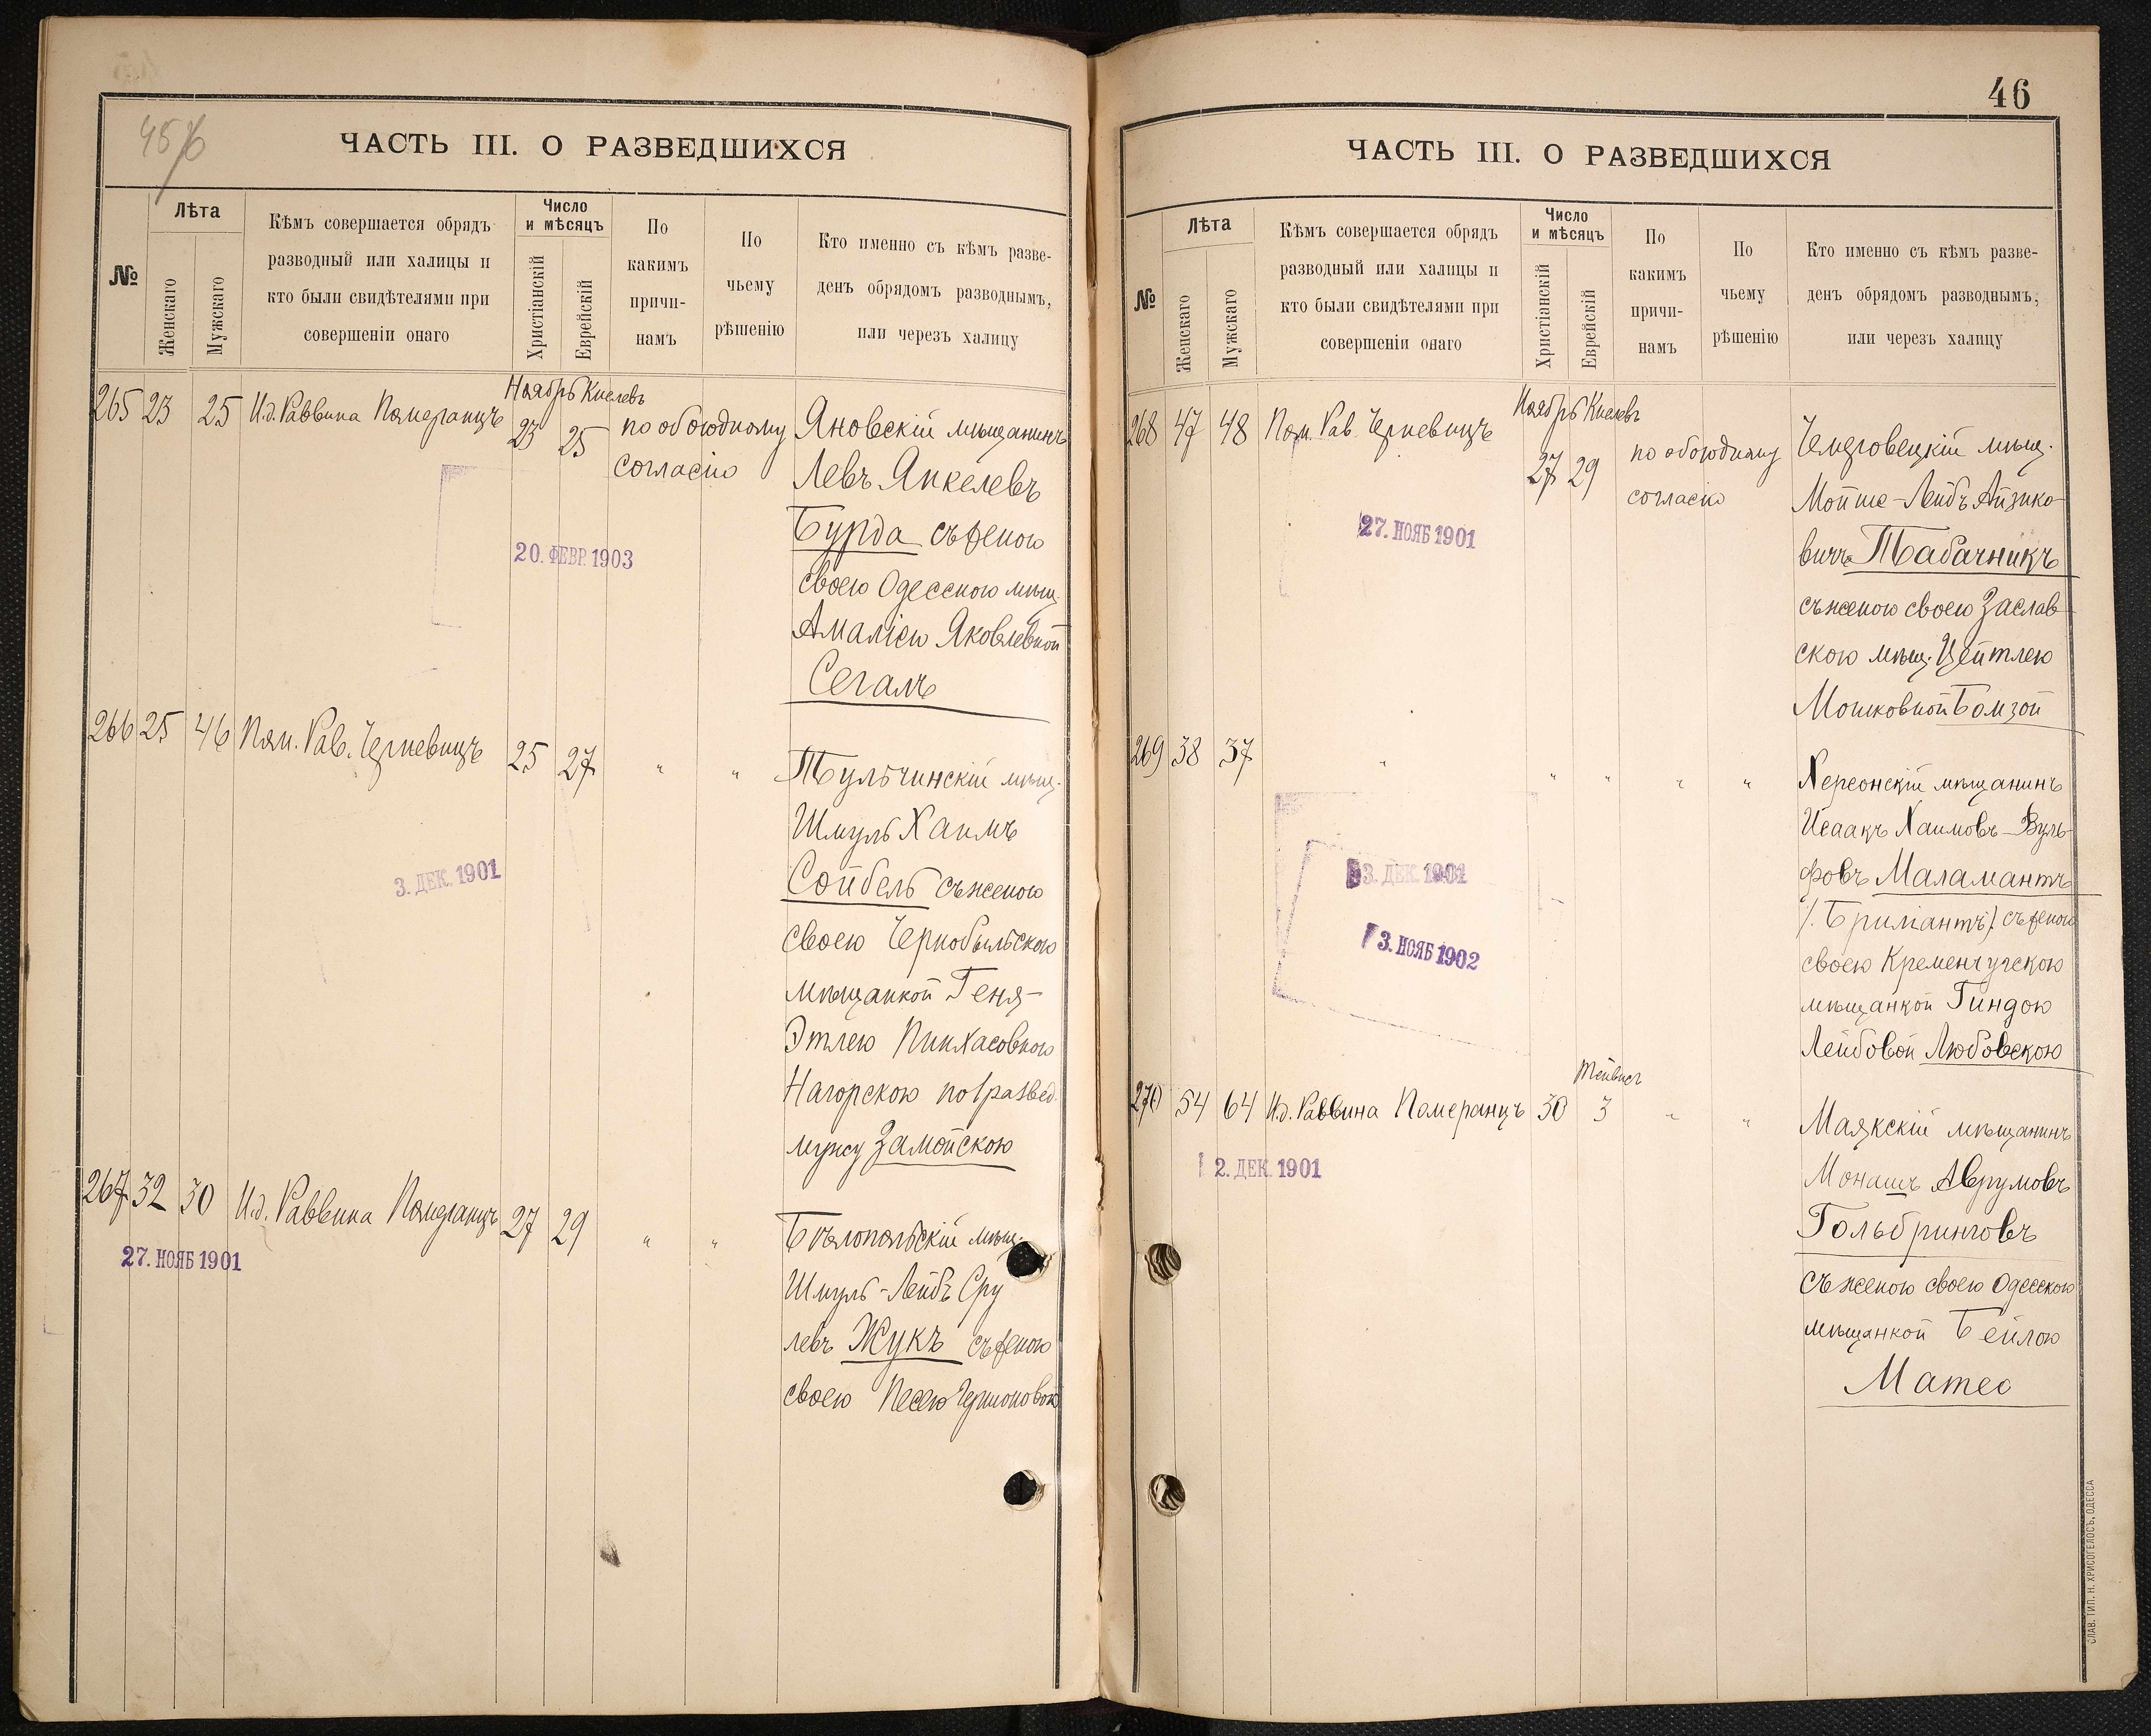 45/6
ЧАСТЬ III. О РАЗВЕДШИХСЯ
№
Лѣта
Женскаго
Мужскаго
Кѣмъ совершается обрядъ
разводный или халицы и
кто были свидѣтелями при
совершеніи онаго
Число
и мѣсяцъ
Христіанскій
Еврейскій
По
какимъ
причи-
намъ
По
чьему
рѣшенію
Кто именно съ кѣмъ разве-
денъ обрядомъ разводнымъ,
или черезъ халицу
Ноябрь Кислевъ
265 23 25 И.д. Раввина Померанцъ 23 25 по обоюдному Яновскій мѣщанинъ
согласію Левъ Янкелевъ
Бурда съ женою
20. ФЕВР. 1903
своею Одесскою мѣщ.
Амаліею Яковлевной
Сегалъ
266 25 46 Пом. Рав. Черневицъ 25 27 " " Тульчинскій мѣщ.
Шмуль Хаимъ
Сойбель съ женою
3. ДЕК. 1901
своею Чернобыльскою
мѣщанкой Геня-
Этлею Пинхасовною
Нагорскою по развед.
мужу Замойскою
267 32 30 И.д. Раввина Померанцъ 27 29 " " Бѣлопольскій мѣщ.
27. НОЯБ 1901
Шмуль-Лейбъ Сру
левъ Жукъ съ женою
своею Песею
46
ЧАСТЬ III. О РАЗВЕДШИХСЯ
№
Лѣта
Женскаго
Мужскаго
Кѣмъ совершается обрядъ
разводный или халицы и
кто были свидѣтелями при
совершеніи онаго
Число
и мѣсяцъ
Христіанскій
Еврейскій
По
какимъ
причи-
намъ
По
чьему
рѣшенію
Кто именно съ кѣмъ разве-
денъ обрядомъ разводнымъ,
или черезъ халицу
Ноябрь Кислевъ
268 47 48 Пом. Рав. Черневицъ 27 29 по обоюдному Чемеровецкій мѣщ.
согласію Мойше-Лейбъ Айзико-
27. НОЯБ 1901
вичъ Табачникъ
съ женою своею Заслав-
скою мѣщ. Цейтлею
Мошковной Бомзой
269 38 37 " " " " " Херсонскій мѣщанинъ
Исаакъ Хаимовъ-Вуль-
фовъ Маламантъ
3. ДЕК. 1901
/. Бриліантъ ./ съ женою
3. НОЯБ 1902
своею Кременчугскою
мѣщанкой Гиндою
Лейбовой Любовскою
Тейвисъ
270 54 64 И.д. Раввина Померанцъ 30 3 " " Маякскій мѣщанинъ
2. ДЕК. 1901
Монашъ Аврумовъ
Гольбринговъ
съ женою своею Одесскою
мѣщанкой Бейлою
Матес
СЛАВ. ТИП. Н. ХРИСОГЕЛОСЪ, ОДЕССА